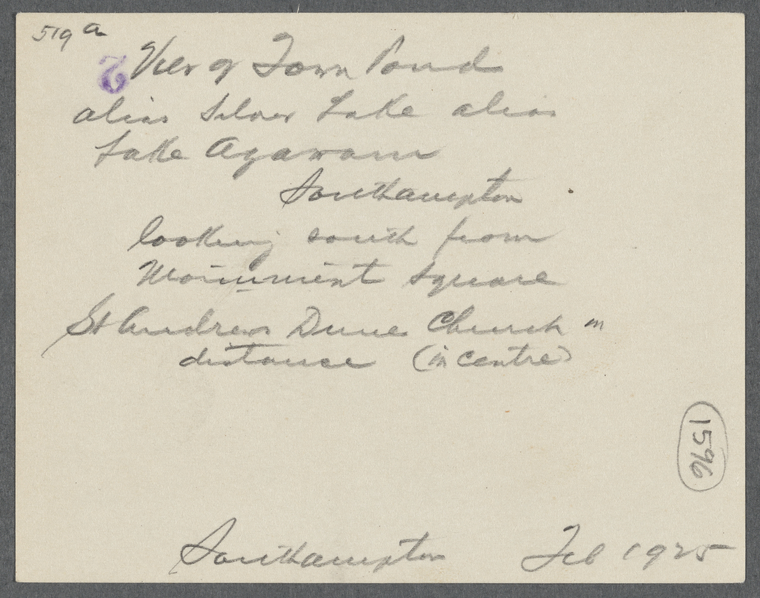 519 a
2 View of Town Pond
alias Silver Lake alias
Lake Agawam
Southampton
looking south from
Monument Square
St Andrews Dune Church in
distance (in centre)
1596
Southampton Feb 1925